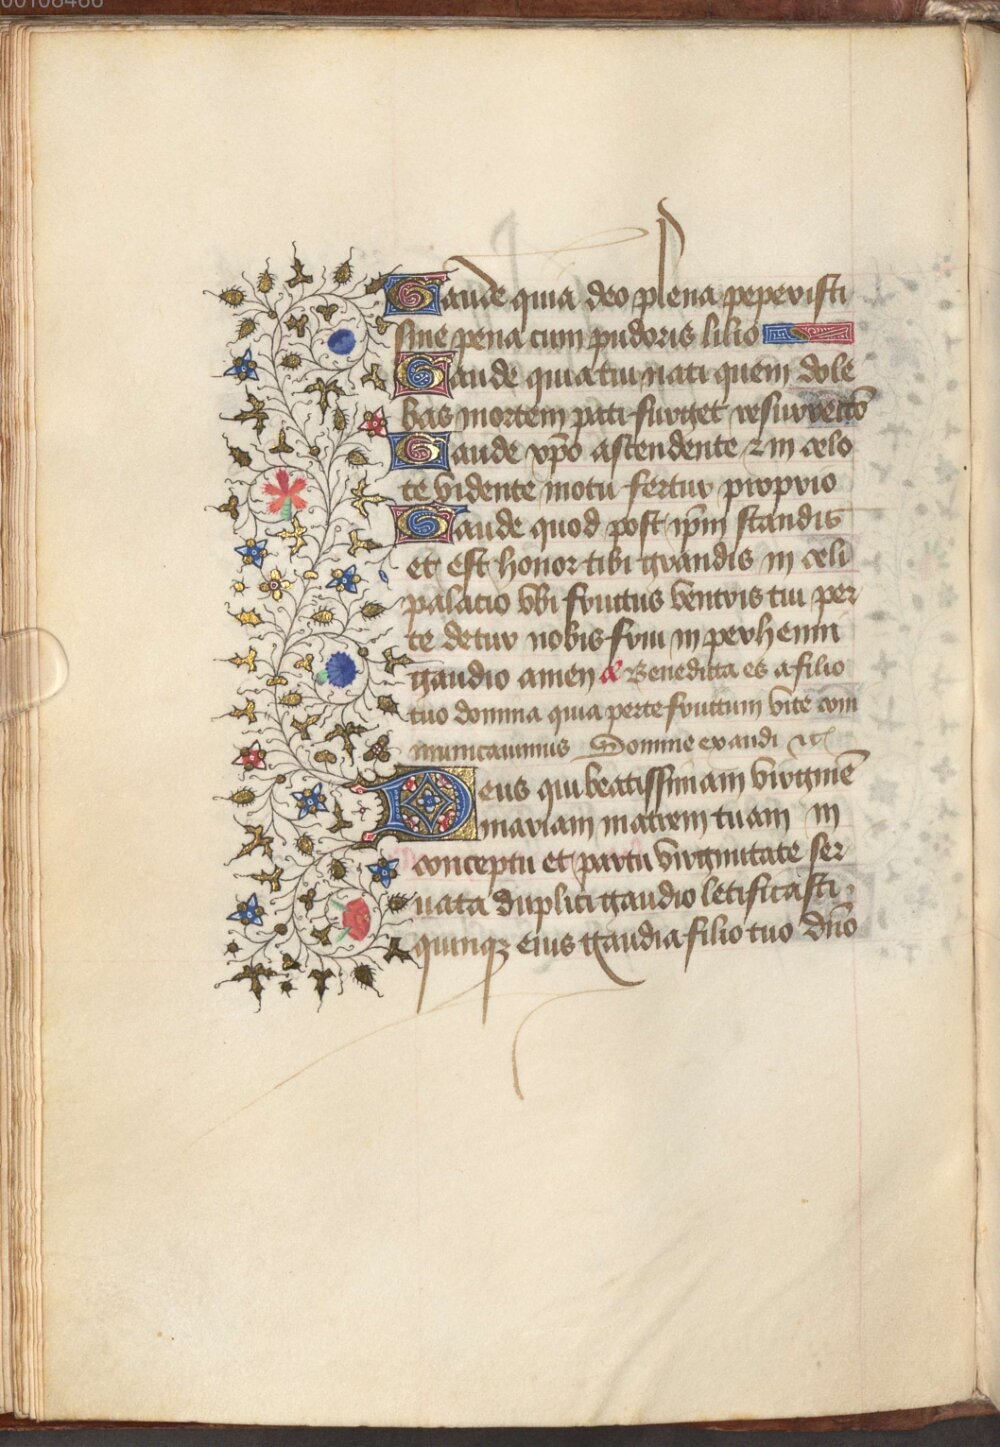 00108466
Gaude quia deo plena peperisti
sine pena cum pudoris lilio
Gaude quia tui nati quem dole
bas mortem pati fulget resurrectō
Gaude xp̄o ascendente ⁊ in celo
te vidente motu fertur proprio
Gaude quod post ip̄m scandis
et est honor tibi grandis in celi
palacio vbi fructus ventris tui per
te detur nobis frui in perhenni
gaudio amen Benedicta es a filio
tuo domina quia per te fructum vite com
municauimus Domine exaudi
Deus qui beatissimam virginē
mariam matrem tuam in
conceptu et partu virginitate ser
uata duplici gaudio letificasti
quinqꝫ eius gaudia filio tuo dn̄o